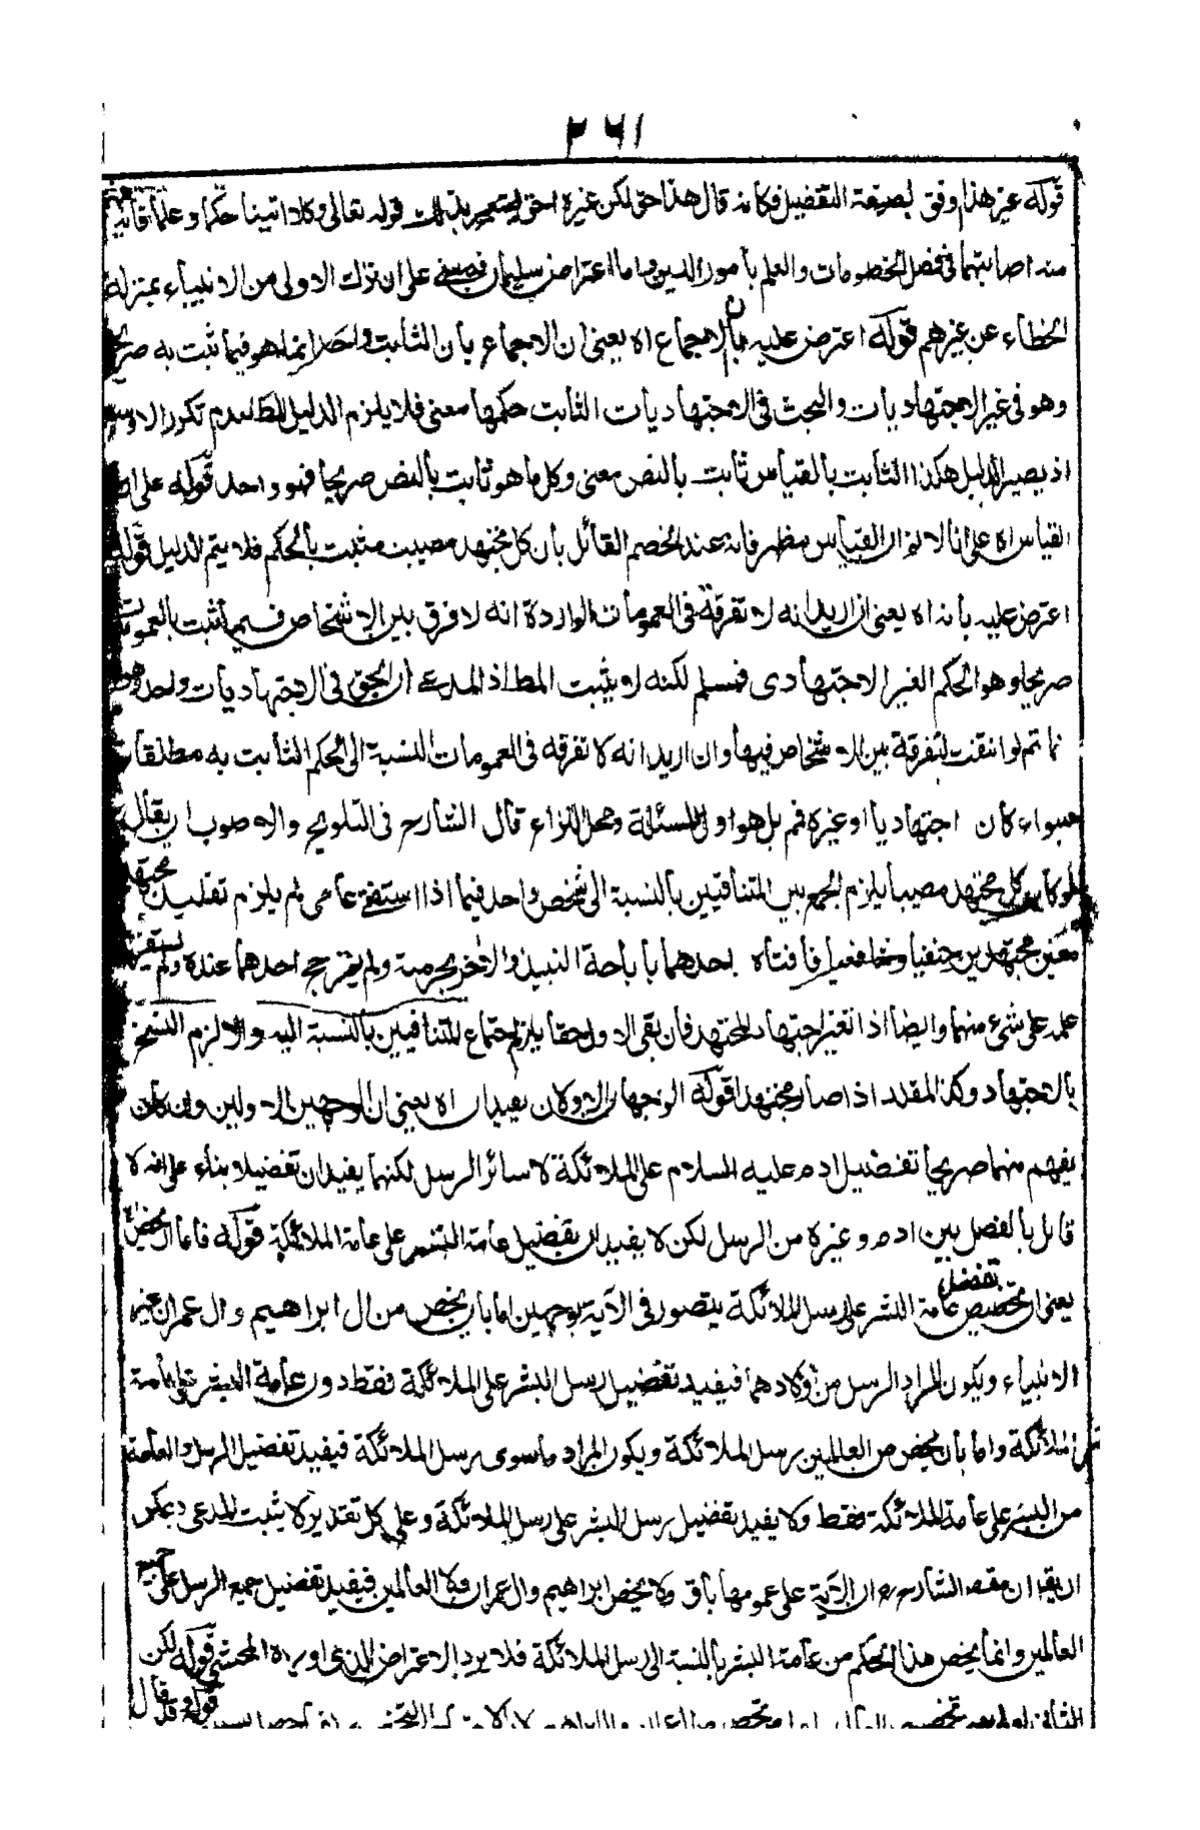 ٣٦١
قوله غير هذا وفق لصيغة التفضيل فكأنه قال هذا حق لكن غيره احق قوله تعالى وكلا اتينا حكما وعلما فانه يفهم
منه اصابتهما في فصل الخصومات والعلم بأمور الدين واما اعتراض سليمان فمبني على ان ترك الاولى من الانبياء بمنزلة
الخطاء عن غيرهم قوله اعترض عليه بان الاجماع اه يعنى ان الاجماع بأن الثابت واحد انما هو فيما ثبت به صريحا
وهو فى غير الاجتهاديات والبحث فى الاجتهاديات الثابت حكمها معنى فلا يلزم الدليل المط لعدم تكرر الاوسط
اذ يصير الدليل هكذا الثابت بالقياس ثابت بالنص معنى وكل ما هو ثابت بالنص صريحا فهو واحد قوله على ان
القياس اه على انا لا نم ان القياس مظهر فانه عند الخصم القائل بأن كل مجتهد مصيب مثبت بالحكم فلا يتم الدليل قوله
اعترض عليه بأنه اه يعنى ان اريد انه لا تفرقة فى العمومات الواردة انه لا فرق بين الاشخاص فيما ثبت بالعمومات
صريحا وهو الحكم الغير الاجتهادى فمسلم لكنه لا يثبت المط اذ المدعى ان الحق فى الاجتهاديات واحد وهو
انما تم لو انتفت التفرقة بين الاشخاص فيها وان اريد انه لا تفرقة فى العمومات بالنسبة الى الحكم الثابت به مطلقا
سواء كان اجتهاديا او غيره فمم بل هو اول المسئلة ومحل النزاع قال الشارح فى التلويح والاصوب ان يقال
لو كان كل مجتهد مصيبا يلزم الجمع بين المتنافيين بالنسبة الى شخص واحد فيما اذا استفتى عامى لم يلزم تقليد مجتهد
معين مجتهدين حنفيا وشافعيا فأفتاه احدهما بأباحة النبيذ والاخر بحرمته ولم يترجح احدهما عنده ولم يستقر
علمه على شئ منهما وايضا اذا تغير اجتهاد المجتهد فان بقى الاول حقا يلزم اجتماع المتنافيين بالنسبة اليه والا لزم النسخ
بالاجتهاد وكذا المقلد اذا صار مجتهدا قوله الوجهان الاولان يفيدان اه يعنى ان الوجهين الاولين وان كان
يفهم منهما صريحا تفضيل ادم عليه السلام على الملائكة لا سائر الرسل لكنهما يفيدان تفضيلا بناء على انه لا
قائل بالفصل بين ادم وغيره من الرسل لكن لا يفيدان تفضيل عامة البشر على عامة الملائكة قوله فاما ان يخص اه
يعنى ان تخصيص تفضيل عامة البشر على رسل الملائكة يتصور فى الآية بوجهين اما بأن يخص من ال ابراهيم وال عمران غير
الانبياء ويكون المراد الرسل من اولادهما فيفيد تفضيل رسل البشر على الملائكة فقط دون عامة البشر على عامة
الملائكة واما بأن يخص من العالمين رسل الملائكة ويكون المراد ما سوى رسل الملائكة فيفيد تفضيل الرسل والعامة
من البشر على عامة الملائكة فقط ولا يفيد تفضيل رسل البشر على رسل الملائكة وعلى كل تقدير لا يثبت المدعى ويمكن
ان يقال ان مقصد الشارح ره ان الآية على عمومها باق ولا يخص ابراهيم وال عمران ولا العالمين فيفيد تفضيل جميع الرسل على جميع
العالمين وانما يخص هذا الحكم من عامة البشر بالنسبة الى رسل الملائكة فلا يرد الاعتراض الذى اورده المحشى قوله لكن